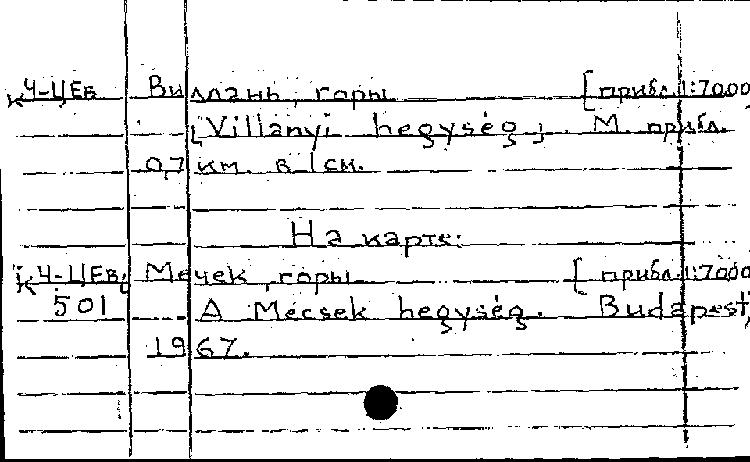 К Ч-ЦЕв Виллань, горы [прибл. 1:7000
[Villányi hegység]. М. прибл.
0,7 км. в 1 см.
На карте:
К Ч-ЦЕв Мечек, горы [прибл. 1:7000
501 A Mecsek hegység. Budapest,
1967.